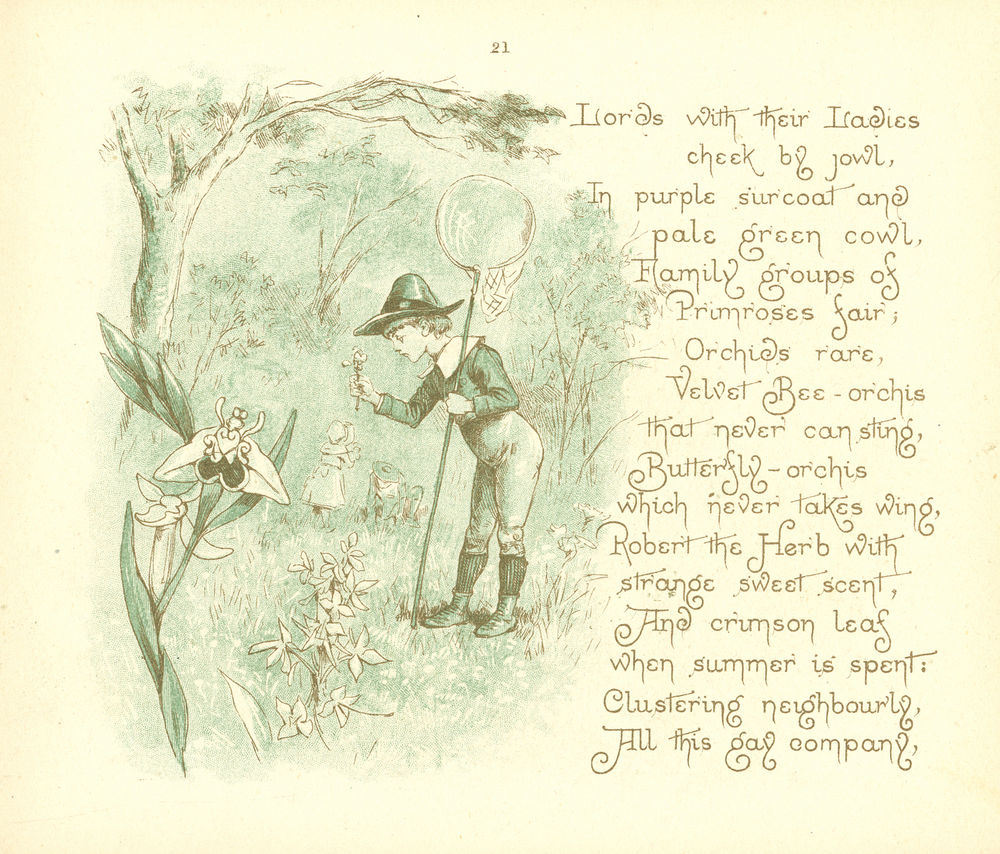 21
Lords with their Ladies
cheek by jowl,
In purple surcoat and
pale green cowl,
Family groups of
Primroses fair;
Orchids rare,
Velvet Bee-orchis
that never can sting,
Butterfly-orchis
which never takes wing,
Robert the Herb with
strange sweet scent,
And crimson leaf
when summer is spent:
Clustering neighbourly,
All this gay company,